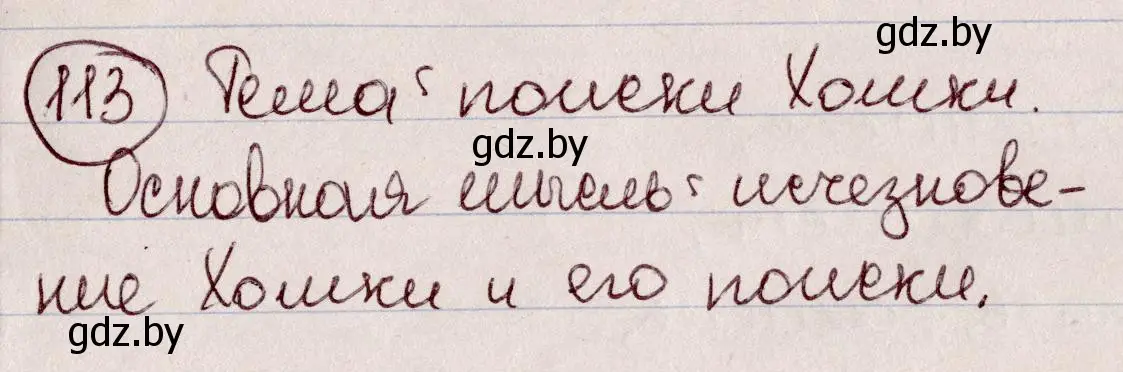 gdz.by
113 Тема: поиски Хомки.
gdz.by
Основная мысль: исчезнове-
ние Хомки и его поиски.
gdz.by